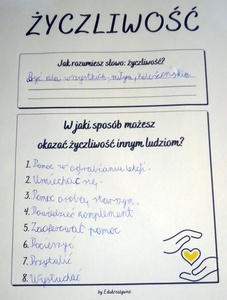 ŻYCZLIWOŚĆ
Jak rozumiesz słowo: życzliwość?
Być dla wszystkich miłym,
W jaki sposób możesz
okazać życzliwość innym ludziom?
1. Pomoc w odrabianiu lekcji.
2. Uśmiechać się.
3. Pomoc osobą starszym.
4. Powiedzieć komplement
5. Zaoferować pomoc
6. Pocieszyć
7. Przytulić
8. Wysłuchać
by Edukreatywna